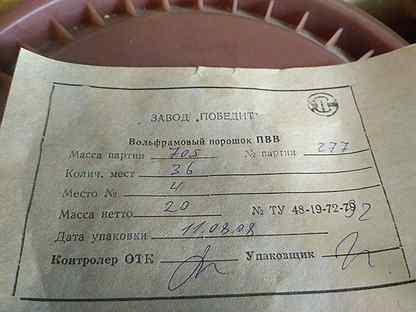 ЗАВОД „ПОБЕДИТ"
Вольфрамовый порошок ПВВ
Масса партии 705 № партии 277
Колич. мест 36
Место № 4
Масса нетто 20 № ТУ 48-19-72-92
Дата упаковки 11.08.08
Контролер ОТК Упаковщик